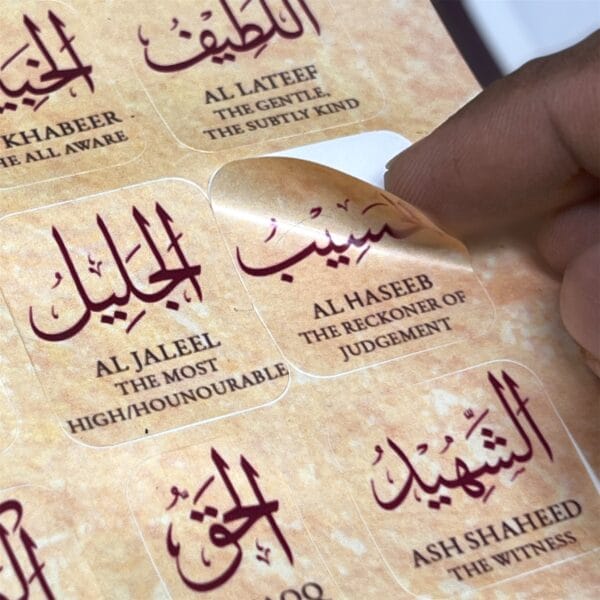 KHABEER
ALL AWARE
اللطيف
AL LATEEF
THE GENTLE,
THE SUBTLY KIND
الجليل
AL JALEEL
THE MOST
HIGH/HOUNOURABLE
AL HASEEB
THE RECKONER OF
JUDGEMENT
الحق
الشهيد
ASH SHAHEED
THE WITNESS